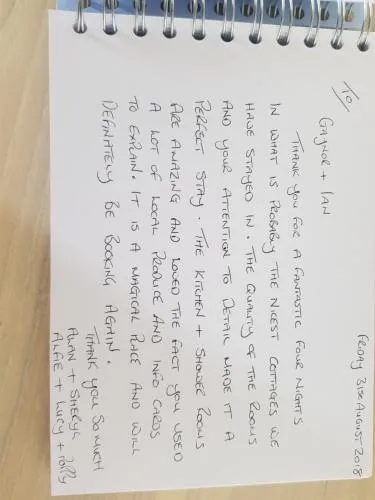 Friday 31st August 2018
To/
Gaynor + Ian
Thank you for a fantastic four nights
in what is probably the nicest cottages we
have stayed in. The quality of the rooms
and your attention to detail made it a
perfect stay. The kitchen + shower rooms
are amazing and loved the fact you used
a lot of local produce and info cards
to explain. It is a magical place and will
definately be booking again.
Thank you so much
Alan + Sheryl
Alfie + Lucy + Polly